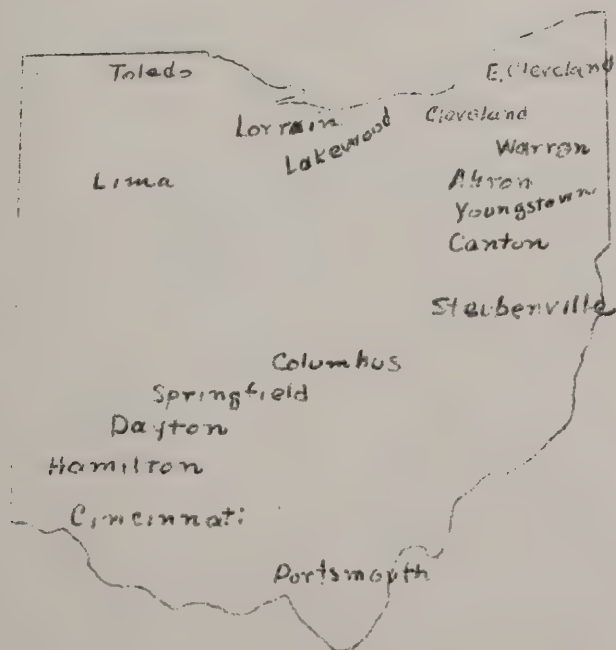 Toledo
E. Cleveland
Lorrain
Cleveland
Lakewood
Warren
Lima
Akron
Youngstown
Canton
Steubenville
Columbus
Springfield
Dayton
Hamilton
Cincinnati
Portsmouth